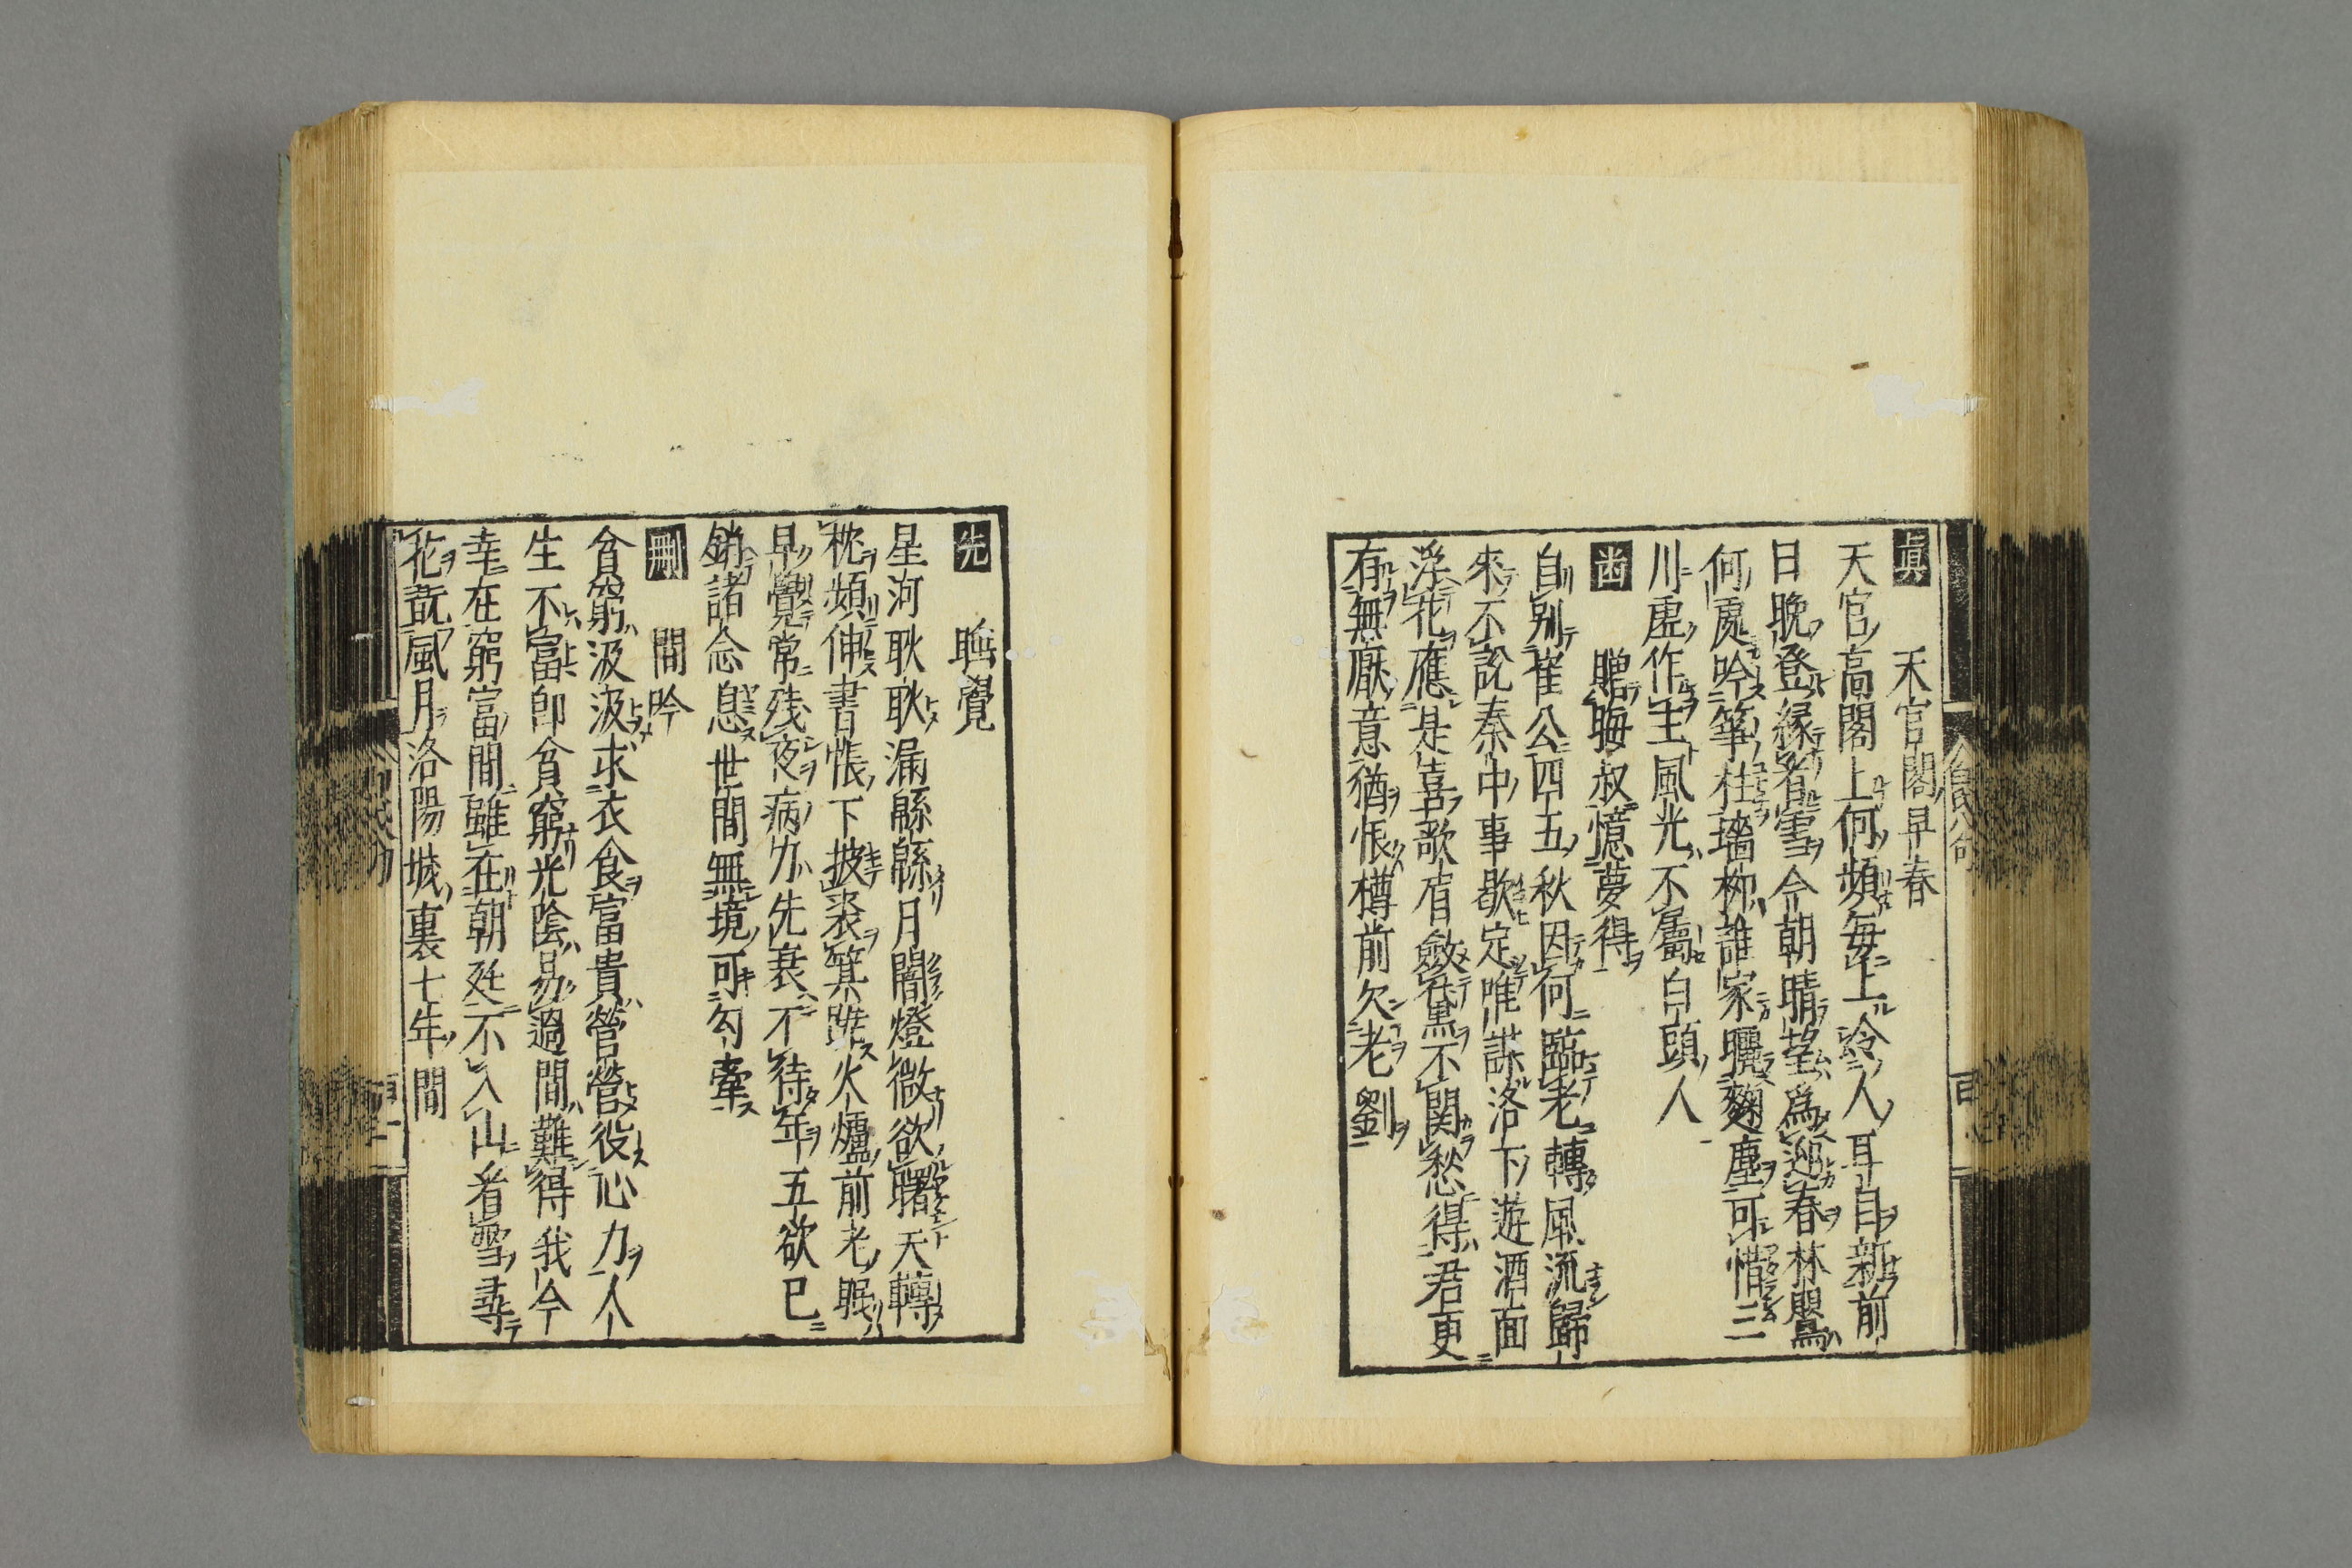 眞 天宮閣早春
天官高閣上何頻毎上令人耳目新前
日晚登緣看雪今朝晴望爲迎春林鶯
何處吟箏柱墻柳誰家曬麴塵可惜三
川虛作主風光不屬白頭人
歯 贈晦叔憶夢得
自別崔公四五秋因何臨老轉風流歸
來不說秦中事歇定唯謀洛下遊酒面
浮花應是喜歌眉斂黛不關愁得君更
有無厭意猶恨樽前欠老劉
先 睡覺
星河耿耿漏緜緜月闇燈微欲曙天轉
枕頻伸書帳下披裘箕踞火爐前老眠
早覺常殘夜病力先衰不待年五欲已
銷諸念息世間無境可勾牽
刪 間吟
貧窮汲汲求衣食富貴營營役心力人
生不富即貧窮光陰易過間難得我今
幸在窮富間雖在朝廷不入山看雪尋
花翫風月洛陽城裏十年間